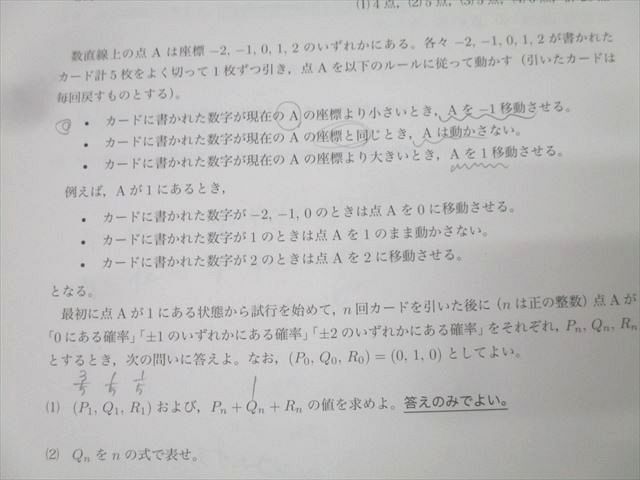 (1) 4点, (2) 5点,
数直線上の点 A は座標 −2, −1, 0, 1, 2 のいずれかにある。各々 −2, −1, 0, 1, 2 が書かれた
カード計5枚をよく切って1枚ずつ引き，点 A を以下のルールに従って動かす（引いたカードは
毎回戻すものとする）。
• カードに書かれた数字が現在の A の座標より小さいとき，A を −1 移動させる。
• カードに書かれた数字が現在の A の座標と同じとき，A は動かさない。
• カードに書かれた数字が現在の A の座標より大きいとき，A を 1 移動させる。
例えば，A が 1 にあるとき，
• カードに書かれた数字が −2, −1, 0 のときは点 A を 0 に移動させる。
• カードに書かれた数字が 1 のときは点 A を 1 のまま動かさない。
• カードに書かれた数字が 2 のときは点 A を 2 に移動させる。
となる。
最初に点 A が 1 にある状態から試行を始めて，n 回カードを引いた後に（n は正の整数）点 A が
「0 にある確率」「±1 のいずれかにある確率」「±2 のいずれかにある確率」をそれぞれ，Pn, Qn, Rn
とするとき，次の問いに答えよ。なお，(P0, Q0, R0) = (0, 1, 0) としてよい。
3/5 1/5 1/5 1
(1) (P1, Q1, R1) および，Pn + Qn + Rn の値を求めよ。答えのみでよい。
(2) Qn を n の式で表せ。